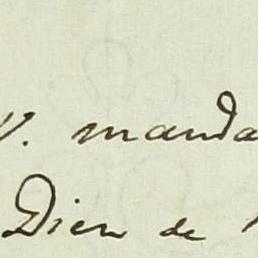 v. manda
Dieu de